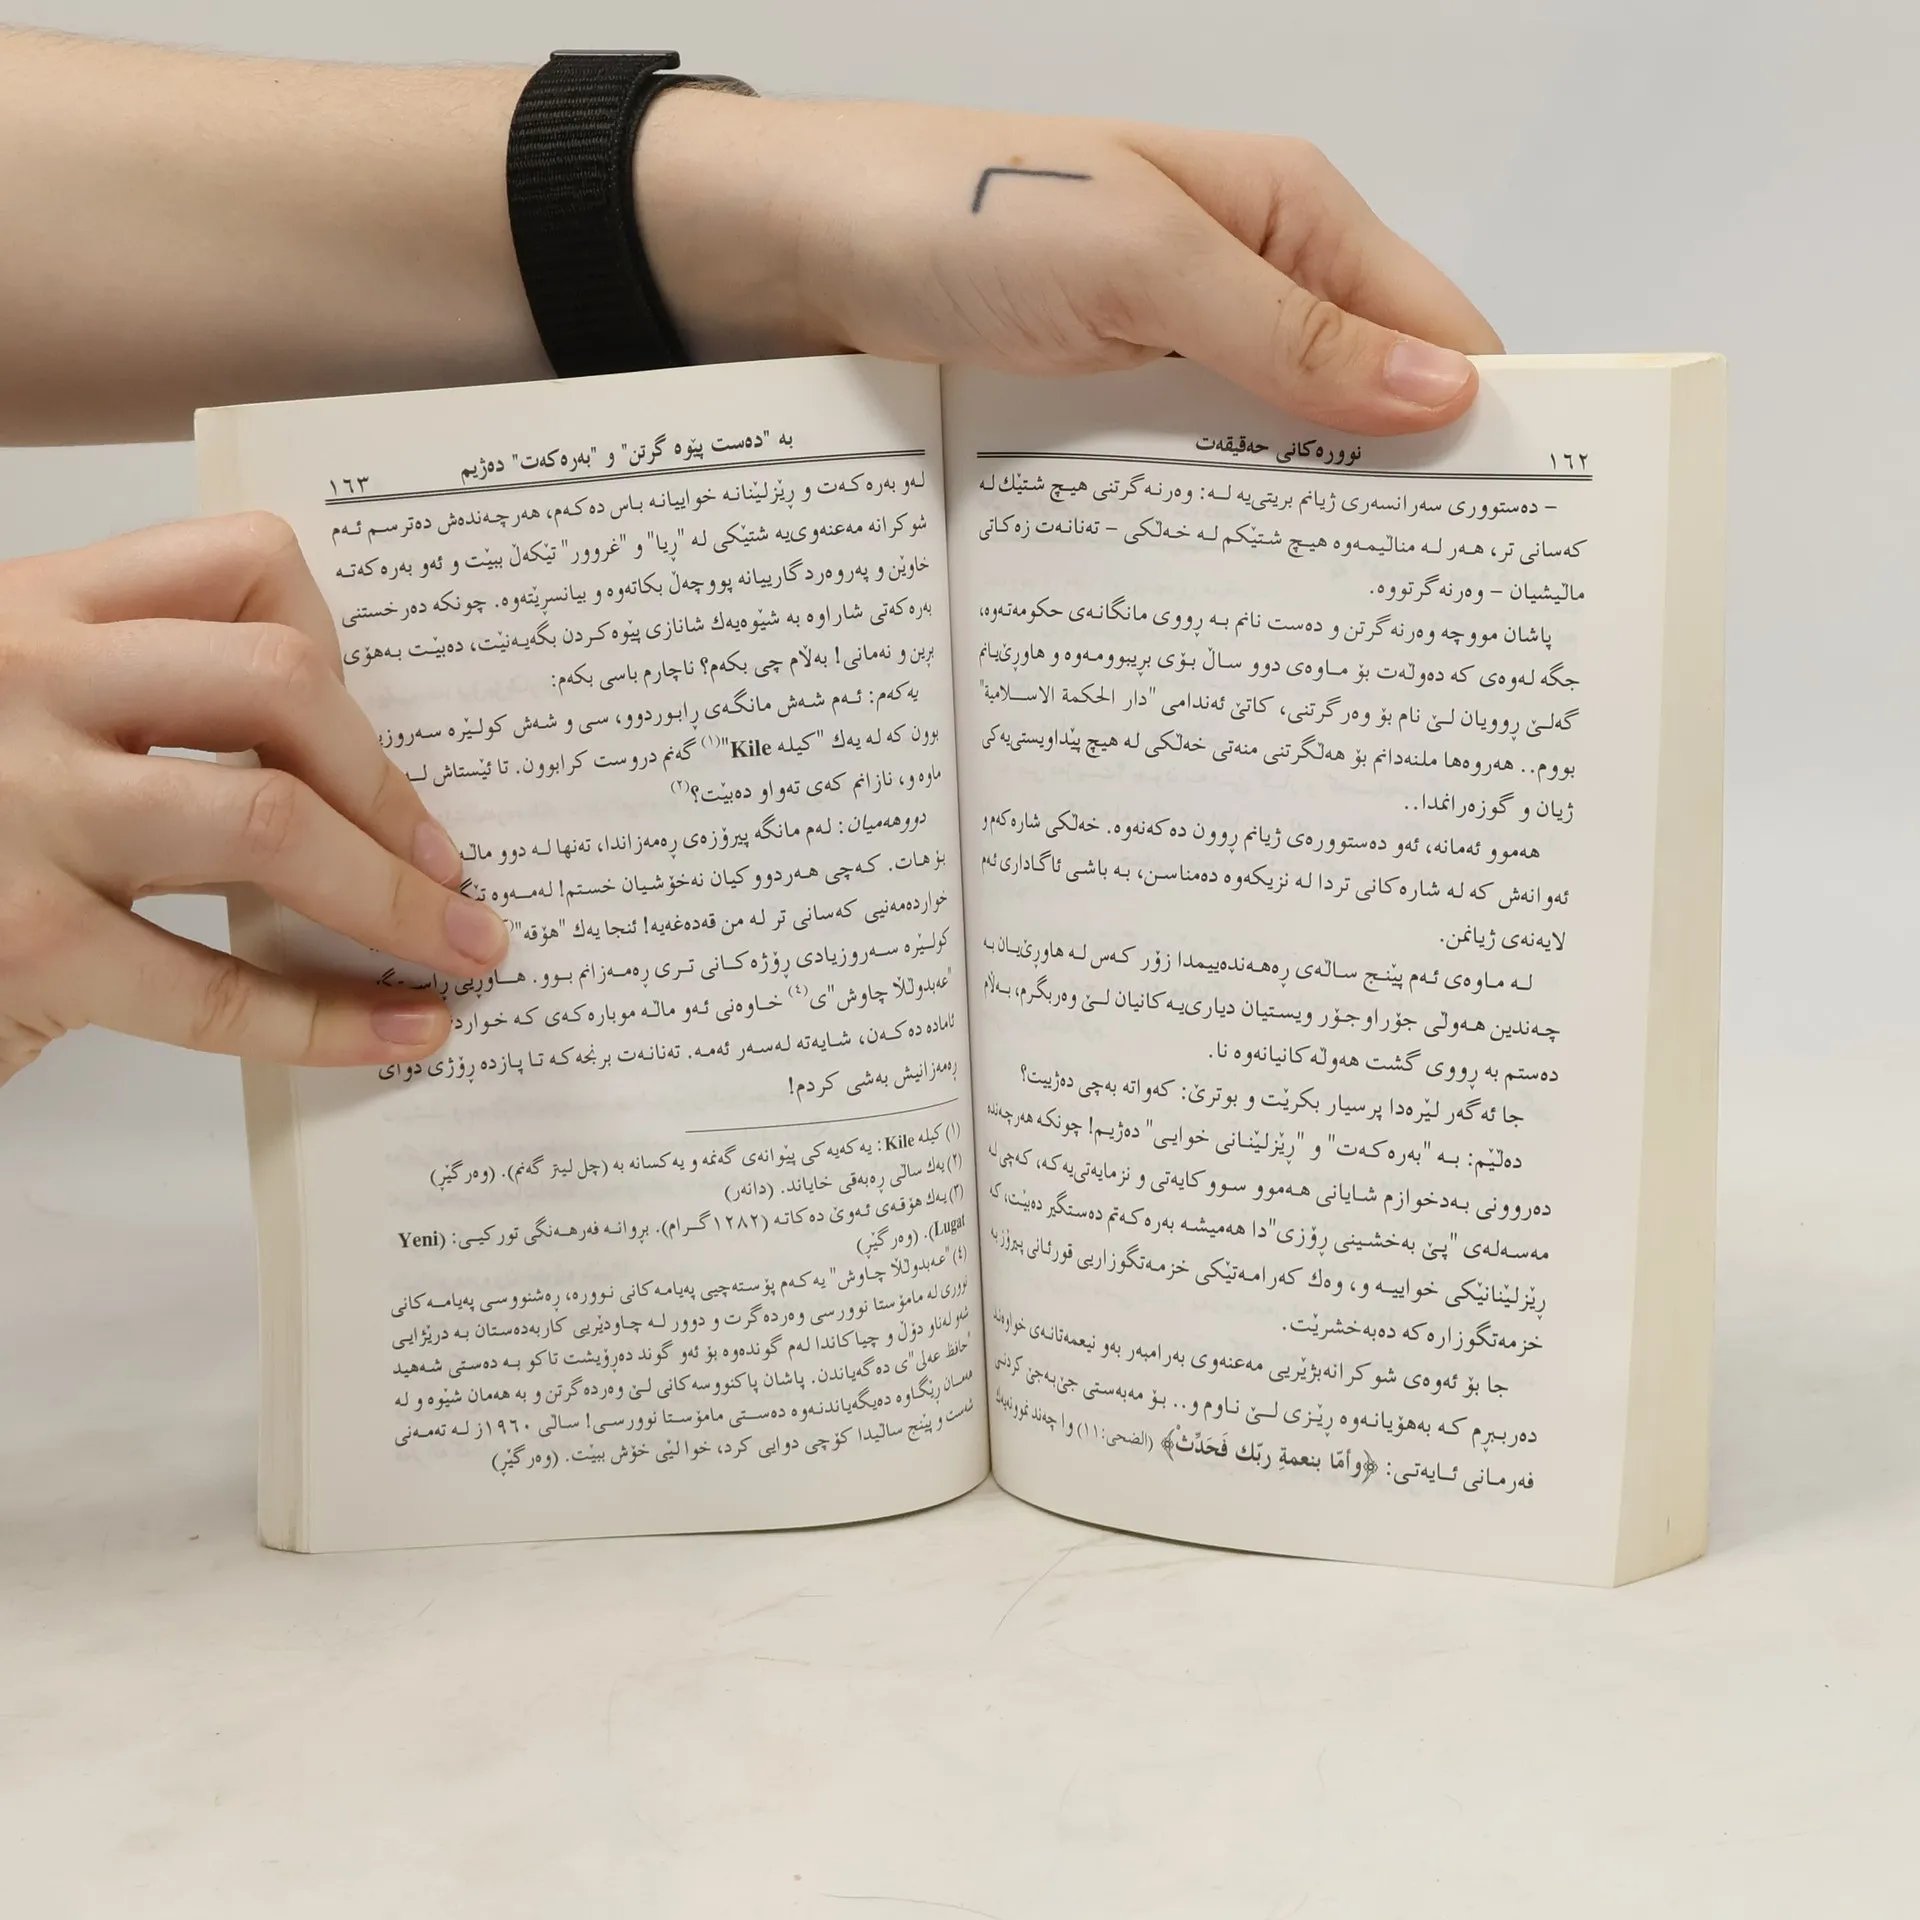 ١٦٢
نوورەکانی حەقیقەت
- دەستووری سەرانسەری ژیانم بریتی‌یە لـە: وەرنـەگرتنی هیـچ شتێك لـە
کەسانی تر، هـەر لـە مناڵیمـەوە هیـچ شتێکم لـە خـەڵکی - تەنانـەت زەکاتی
ماڵیشیان - وەرنەگرتووە.
پاشان مووچە وەرنەگرتن و دەست نانم بـە ڕووی مانگانـەی حکومەتـەوە،
جگە لـەوەی کە دەوڵەت بۆ مـاوەی دوو سـاڵ بـۆی بڕیبوومـەوە و هاوڕێ‌یـانم
گەلـێ ڕوویان لـێ نام بۆ وەرگرتنی، کاتێ ئەندامی "دار الحكمة الاسـلامية"
بووم.. هەروەها ملنەدانم بۆ هەڵگرتنی منەتی خەڵکی لە هیچ پێداویستی‌یەکی
ژیان و گوزەرانمدا..
هەموو ئەمانە، ئەو دەستوورەی ژیانم ڕوون دەکەنەوە. خەڵکی شارەکەم و
ئەوانەش کە لە شارەکانی تردا لە نزیکەوە دەمناسن، بـە باشی ئاگاداری ئەم
لایەنەی ژیانمن.
لـە مـاوەی ئـەم پێنـج سـاڵەی ڕەهـەندەییمدا زۆر کـەس لـە هاوڕێ‌یـان بـە
چـەندین هـەوڵی جۆراوجـۆر ویسـتیان دیاری‌یـەکانیان لـێ وەربگرم، بـەڵام
دەستم بە ڕووی گشت هەوڵەکانیانەوە نا.
جا ئەگەر لێرەدا پرسیار بکرێت و بوترێ: کەواتە بەچی دەژییت؟
دەڵێم: بـە "بەرەکـەت" و "ڕێزلێنـانی خوایی" دەژیـم! چونکە هەرچەندە
دەروونی بـەدخوازم شـایانی هـەموو سـووکایەتی و نزمایەتی‌یەکە، کەچی لە
مەسـەلەی "پـێ بەخشـینی ڕۆزی"دا هەمیشـە بەرەکـەتم دەستگیر دەبێت، کە
ڕێزلێنانێکی خواییـە و، وەك کەرامـەتێکی خزمـەتگوزاریی قورئـانی پیرۆز بە
خزمەتگوزارەکە دەبەخشرێت.
جا بۆ ئەوەی شوکرانەبژێریی مەعنەوی بەرامبەر بەو نیعمەتانـەی خواوەند
دەربـبڕم کـە بەهۆیانـەوە ڕێـزی لـێ نـاوم و.. بـۆ مەبەستی جێ‌بەجێ کردنـی
فەرمـانی ئـایەتی: ﴿وأمّا بنعمةِ ربّك فَحَدِّثْ﴾ (الضحى:١١) وا چەند نموونەیەك
١٦٣
بە "دەست پێوە گرتن" و "بەرەکەت" دەژیم
لـەو بەرەکـەت و ڕێزلێنانـە خواییانـە باس دەکـەم، هەرچـەندەش دەترسـم ئـەم
شوکرانە مەعنەوی‌یە شتێکی لە "ڕیا" و "غروور" تێکەڵ ببێت و ئەو بەرەکەتـە
خاوێن و پەروەردگارییانە پووچەڵ بکاتەوە و بیانسڕێتەوە. چونکە دەرخستنی
بەرەکەتی شاراوە بە شێوەیەك شانازی پێوەکـردن بگەیـەنێت، دەبێـت بـەهۆی
بڕین و نەمانی! بەڵام چی بکەم؟ ناچارم باسی بکەم:
یەکەم: ئـەم شـەش مانگـەی ڕابـوردوو، سی و شەش کولـێرە سـەروزیـ
بوون کە لە یەك "کیلە Kile"(١) گەنم دروست کرابوون. تا ئێستاش لـە
ماوە و، نازانم کەی تەواو دەبێت؟(٢)
دووهەمیان: لـەم مانگە پیرۆزەی ڕەمەزاندا، تەنها لـە دوو ماڵـە
بۆ هات. کـەچی هـەردووکیان نەخۆشیان خستم! لەمـەوە تێگـ
خواردەمەنیی کەسانی تر لـە من قەدەغەیە! ئنجا یەك "هۆقە"
کولـێرە سـەروزیادی ڕۆژەکـانی تـری ڕەمـەزانم بـوو. هـاوڕیی ڕاسـتگـ
"عەبدوڵڵا چاوش"ی(٤) خـاوەنی ئـەو ماڵـە موبارەکـەی کـە خـواردنـ
ئامادە دەکەن، شایەتە لەسەر ئەمە. تەنانەت برنجەکـە تـا پـازدە ڕۆژی دوای
ڕەمەزانیش بەشی کردم!
(١) کیلە Kile: یەکەیەکی پێوانەی گەنمە و یەکسانە بە (چل لیتر گەنم). (وەرگێڕ)
(٢) یەك ساڵی ڕەبەقی خایاند. (دانەر)
(٣) یـەك هۆقـەی ئـەوێ دەکاتـە (١٢٨٢گـرام). بڕوانـە فەرهـەنگی تورکیـی: (Yeni
Lugat). (وەرگێڕ)
(٤) "عـەبدوڵڵا چـاوش" یەکـەم پۆستەچیی پەیامـەکانی نـوورە، ڕەشنووسـی پەیامـەکانی
نووری لە مامۆستا نوورسی وەردەگرت و دوور لـە چـاودێریی کاربەدەستان بـە درێژایی
شەو لەناو دۆڵ و چیاکاندا لـەم گوندەوە بۆ ئەو گوند دەڕۆیشت تاکو بـە دەستی شـەهید
"حافظ عەلی"ی دەگەیاندن. پاشان پاکنووسەکانی لـێ وەردەگرتن و بە هەمان شێوە و لـە
هەمـان ڕێگـاوە دەیگەیاندنـەوە دەسـتی مامۆستا نوورسـی! ساڵی ١٩٦٠ز لـە تەمـەنی
شەست و پێنج ساڵیدا کۆچی دوایی کرد، خوا لێی خۆش ببێت. (وەرگێڕ)